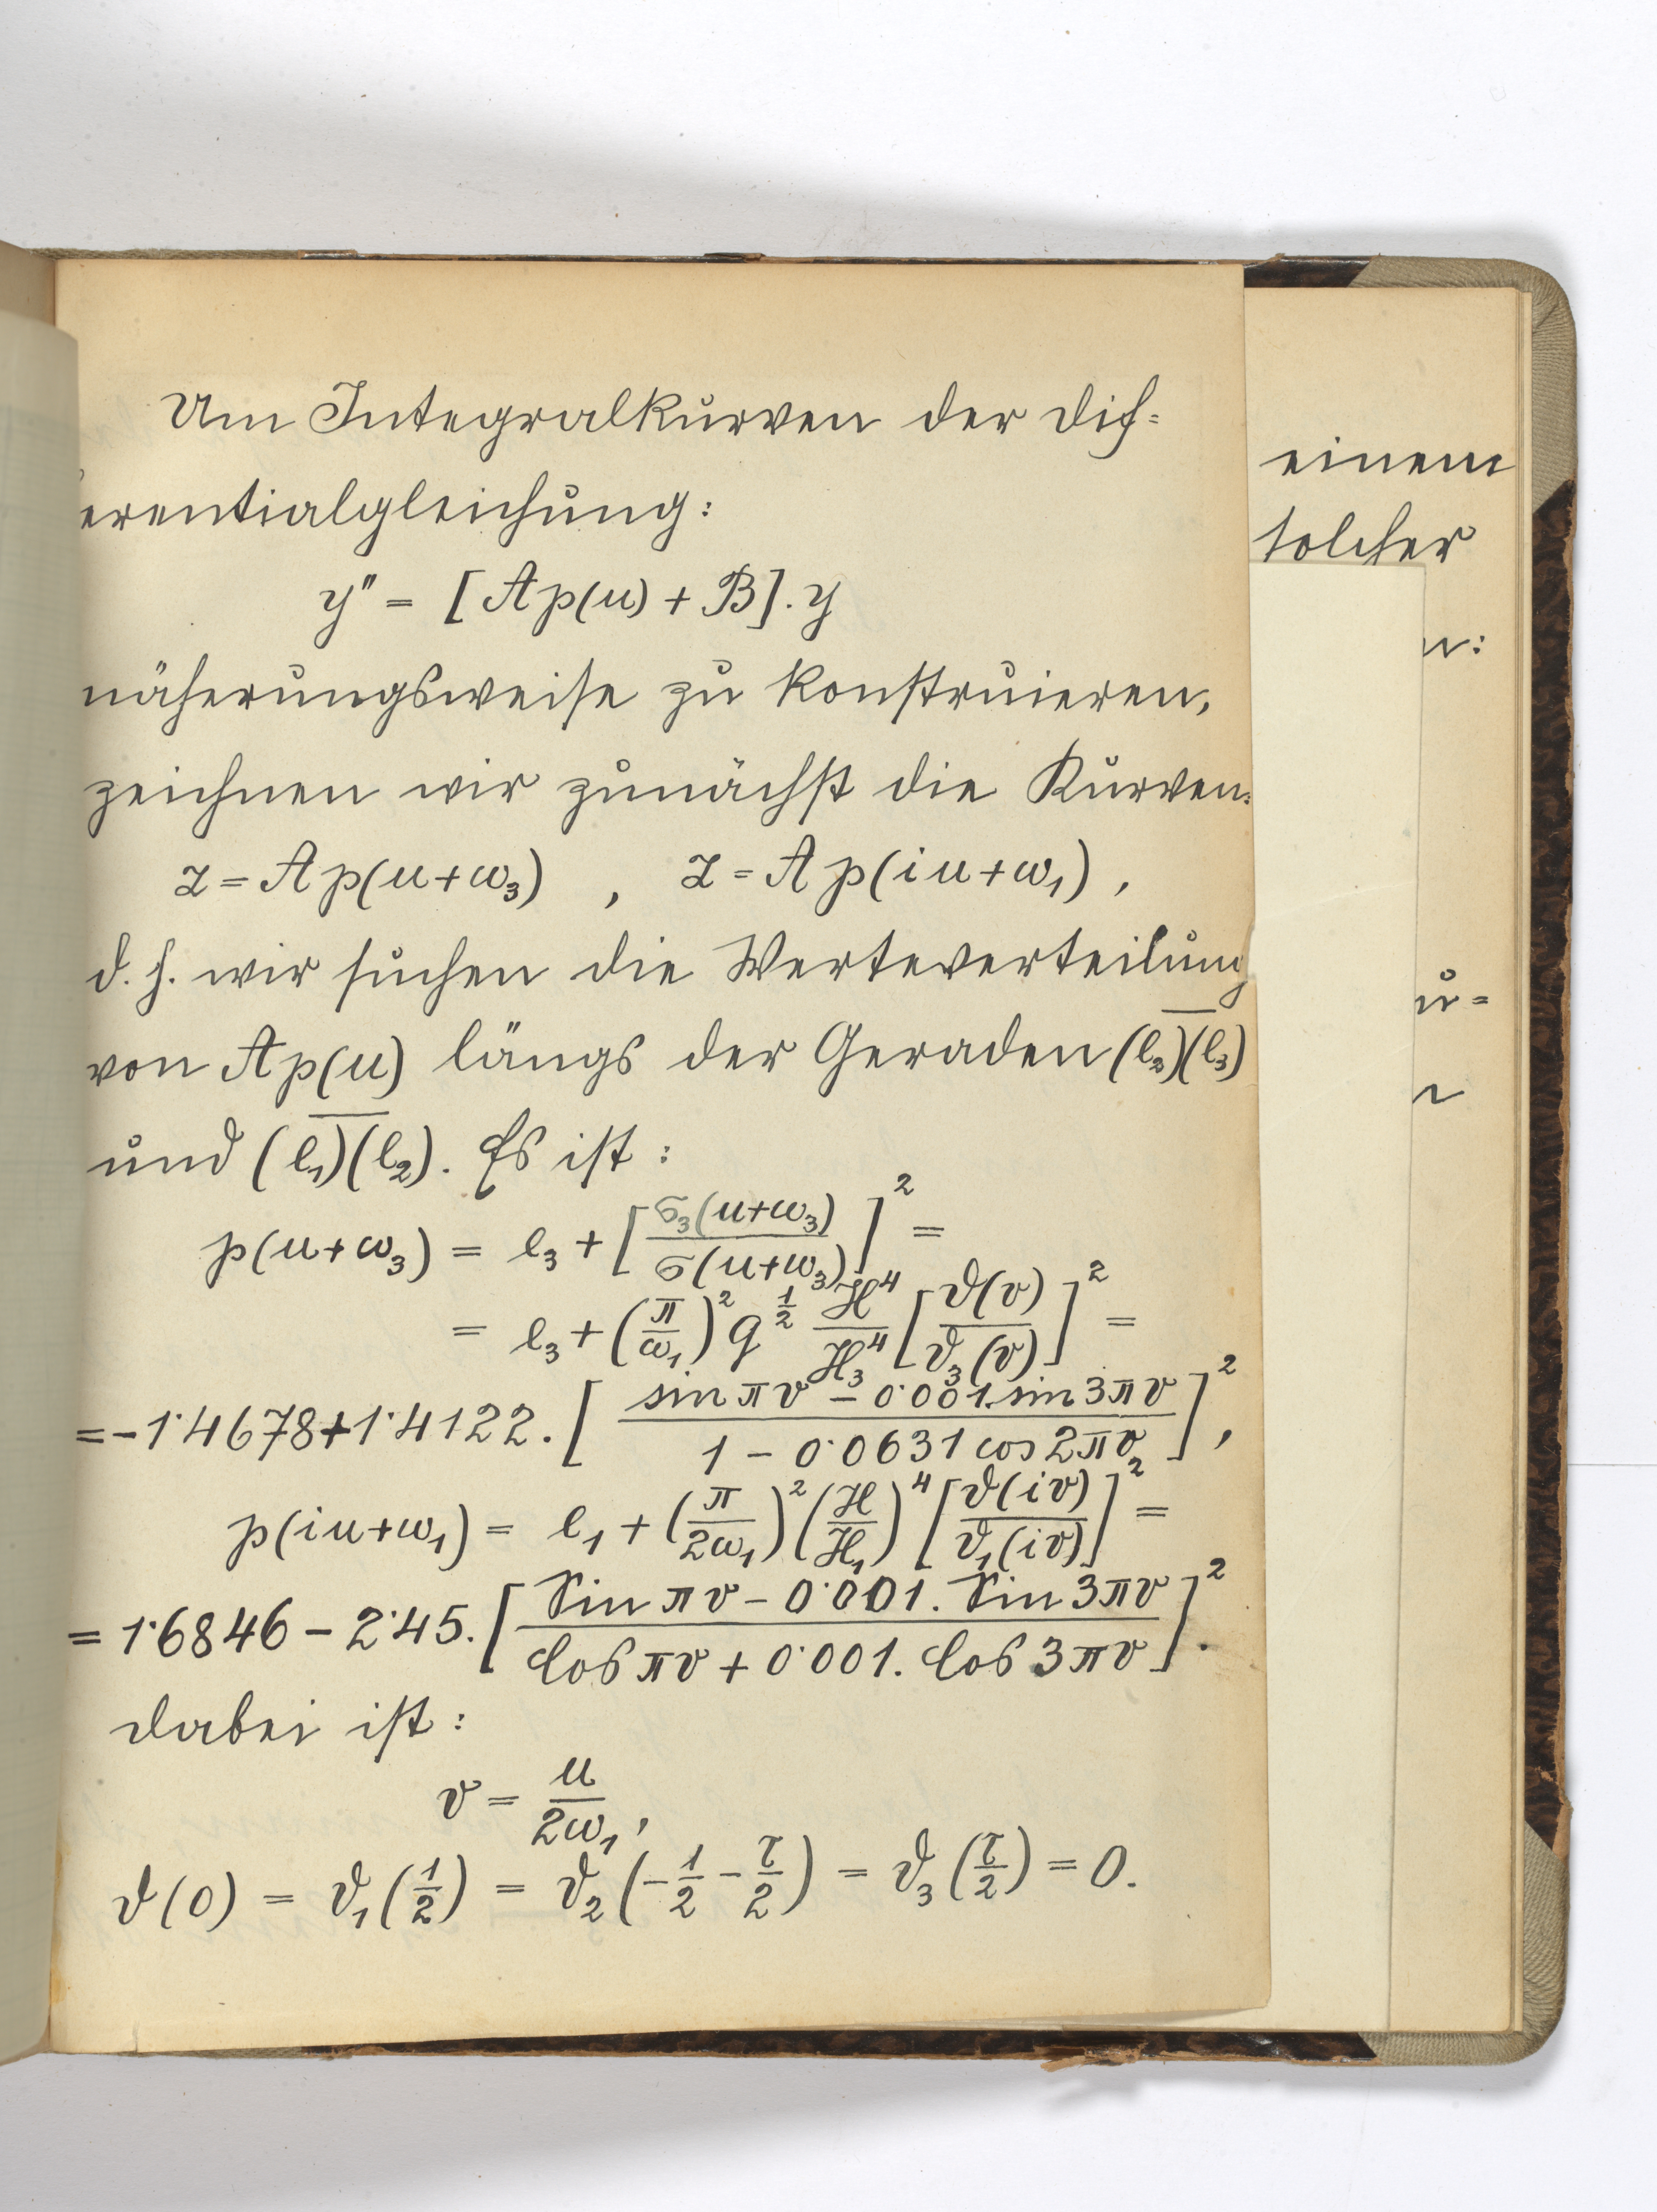 Um Integralkurven der dif=
ferentialgleichung:
y" = [Ap(u) + B].y
näherungsweise zu konstruieren,
zeichnen wir zunächst die Kurven:
z = Ap(u+ω₃) , z = Ap(iu+ω₁) ,
d. h. wir suchen die Werteverteilung
von Ap(u) längs der Geraden (e₂)(e₃)
und (e₁)(e₂). Es ist :
p(u+ω₃) = e₃ + [σ₃(u+ω₃)/σ(u+ω₃)]² =
= e₃ + (π/ω₁)² q^½ H⁴/H₃⁴ [ϑ(v)/ϑ₃(v)]² =
= -1·4678+1·4122. [ (sin πv - 0·001.sin 3πv)/(1 - 0·0631 cos 2πv) ]² ,
p(iu+ω₁) = e₁ + (π/2ω₁)² (H/H₁)⁴ [ϑ(iv)/ϑ₁(iv)]² =
= 1·6846 - 2·45. [ (Sin πv - 0·001. Sin 3πv)/(Cos πv + 0·001. Cos 3πv) ]² .
dabei ist :
v = u/2ω₁ ,
ϑ(0) = ϑ₁(1/2) = ϑ₂(-1/2 - τ/2) = ϑ₃(τ/2) = 0.
einem
solcher
n:
u=